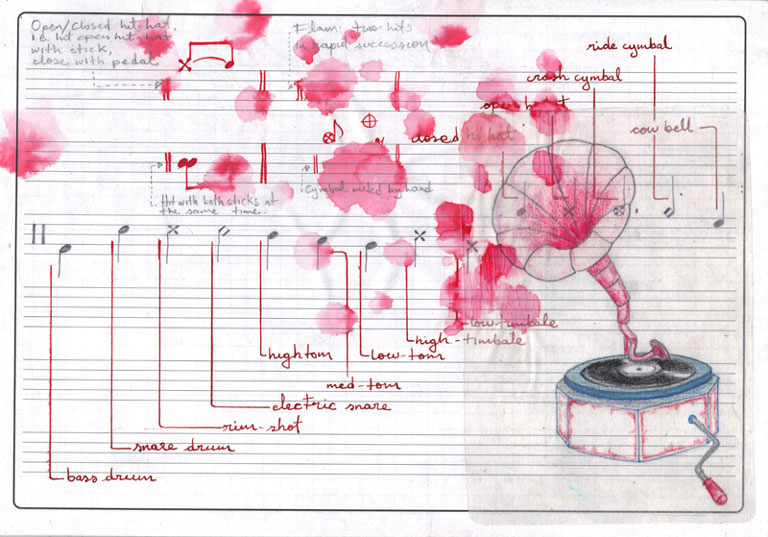 Open/closed hit-hat,
i.e. hit open hit-hat
with stick,
close with pedal
Flam: two hits
in rapid succession
ride cymbal
crash cymbal
open
closed hi hat
cow bell
Hit with both sticks at
the same time.
Cymbal muted by hand
low-timbale
high-timbale
high tom
low-tom
med-tom
electric snare
rim-shot
snare drum
bass drum